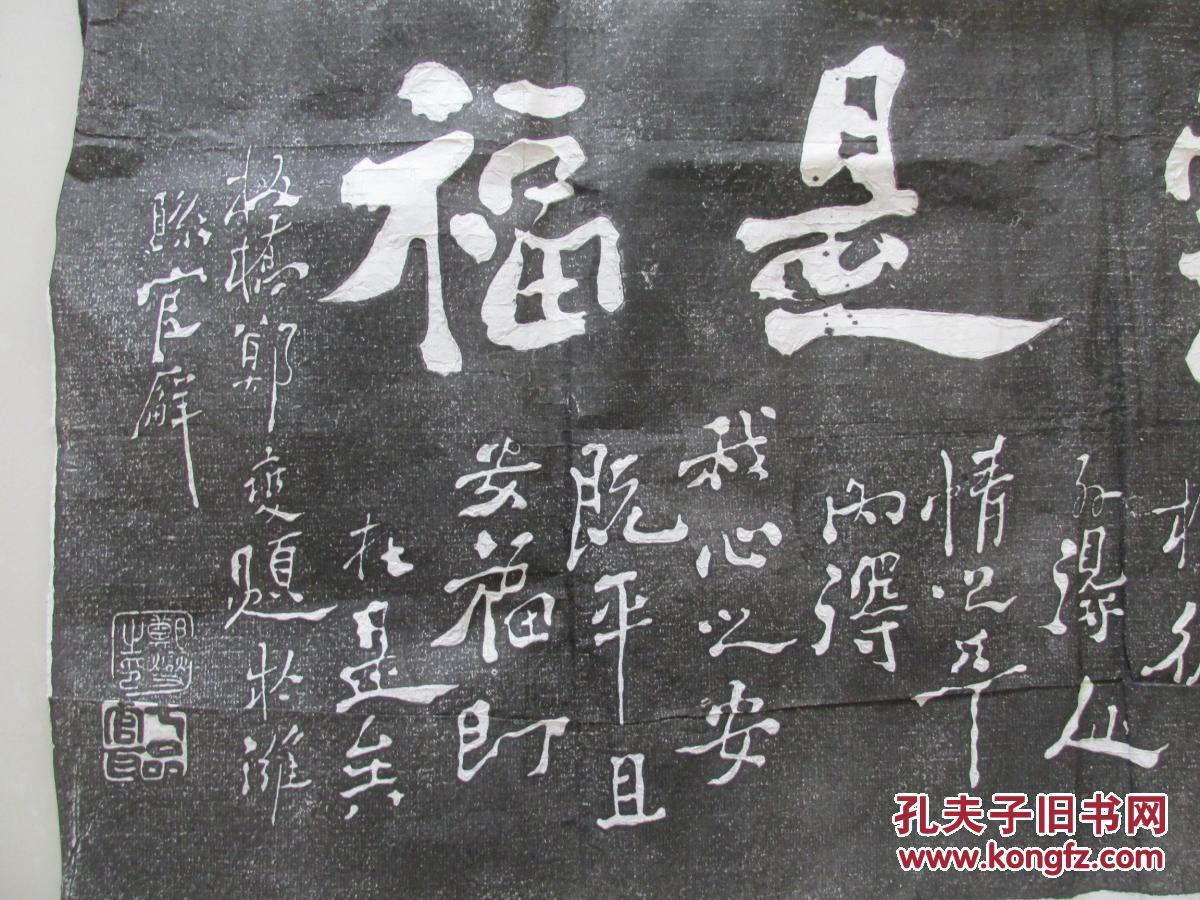 是福
外得人
情之平
内得
我心之安
既平且
安福即
在是矣
板橋鄭燮題於濰
縣官廨
鄭燮之印
七品官耳
孔夫子旧书网
www.kongfz.com